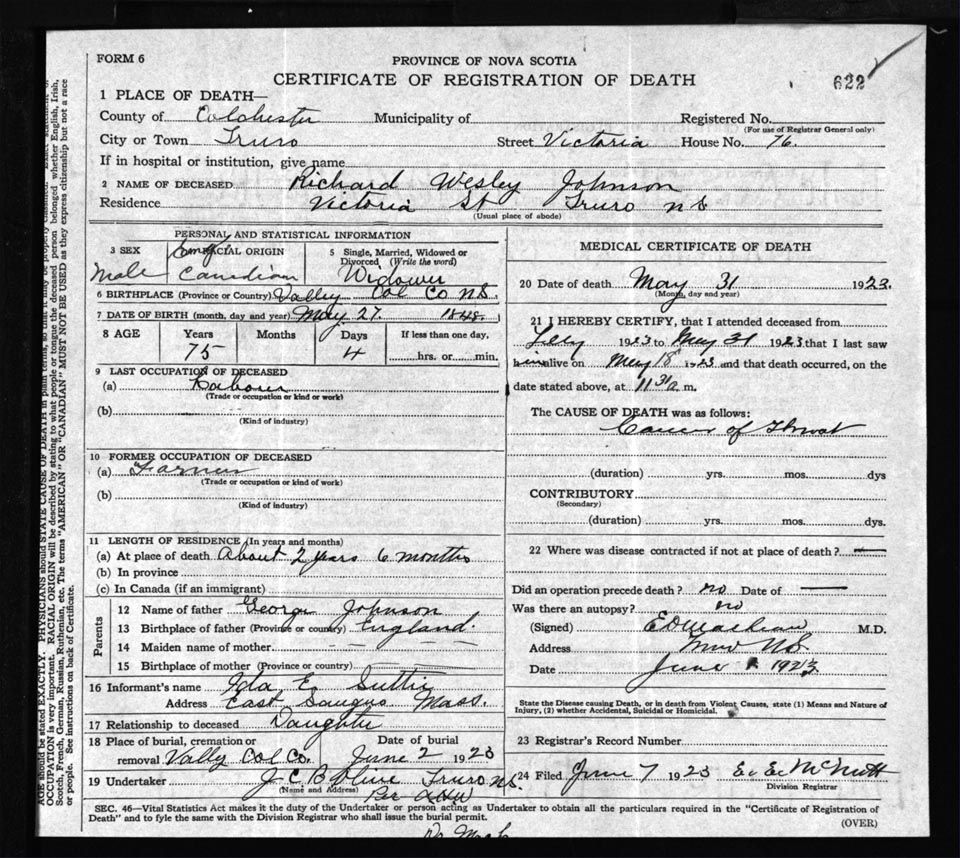 FORM 6
PROVINCE OF NOVA SCOTIA
CERTIFICATE OF REGISTRATION OF DEATH
622
1 PLACE OF DEATH—
County of Colchester Municipality of Registered No.
(For use of Registrar General only)
City or Town Truro Street Victoria House No. 76.
If in hospital or institution, give name
2 NAME OF DECEASED Richard Wesley Johnson
Residence Victoria St Truro NS
(Usual place of abode)
PERSONAL AND STATISTICAL INFORMATION
3 SEX Male
RACIAL ORIGIN Canadian
5 Single, Married, Widowed or Divorced (Write the word) Widower
6 BIRTHPLACE (Province or Country) Valley Col Co NS.
7 DATE OF BIRTH (month, day and year) May 27. 1848.
8 AGE Years 75 Months Days 4 If less than one day, hrs. or min.
9 LAST OCCUPATION OF DECEASED
(a) Labourer
(Trade or occupation or kind or work)
(b)
(Kind of industry)
10 FORMER OCCUPATION OF DECEASED
(a) Farmer
(Trade or occupation or kind of work)
(b)
(Kind of industry)
11 LENGTH OF RESIDENCE (In years and months)
(a) At place of death About 2 years 6 months
(b) In province
(c) In Canada (if an immigrant)
Parents
12 Name of father George Johnson
13 Birthplace of father (Province or country) England.
14 Maiden name of mother
15 Birthplace of mother (Province or country)
16 Informant's name Ida E. Suttie
Address East Saugus Mass.
17 Relationship to deceased Daughter
18 Place of burial, cremation or removal Vally Col Co. Date of burial June 2 1923
19 Undertaker J C B Olive Truro NS.
(Name and Address) Per
MEDICAL CERTIFICATE OF DEATH
20 Date of death May 31 1923.
(Month, day and year)
21 I HEREBY CERTIFY, that I attended deceased from
1923 to May 31 1923 that I last saw
him alive on May 18 1923 and that death occurred, on the
date stated above, at 11 30 m.
The CAUSE OF DEATH was as follows:
Cancer of Throat
(duration) yrs. mos. dys
CONTRIBUTORY
(Secondary)
(duration) yrs. mos. dys.
22 Where was disease contracted if not at place of death? —
Did an operation precede death? no Date of —
Was there an autopsy? no
(Signed) M.D.
Address Truro NS.
Date June 1 1923
State the Disease causing Death, or in death from Violent Causes, state (1) Means and Nature of
Injury, (2) whether Accidental, Suicidal or Homicidal.
23 Registrar's Record Number
24 Filed June 7 1923 E. E. McNutt
Division Registrar
SEC. 46—Vital Statistics Act makes it the duty of the Undertaker or person acting as Undertaker to obtain all the particulars required in the "Certificate of Registration of
Death" and to fyle the same with the Division Registrar who shall issue the burial permit.
(OVER)
AGE should be stated EXACTLY. PHYSICIANS should STATE CAUSE OF DEATH in plain terms, so that it may be properly
OCCUPATION is very important. RACIAL ORIGIN will be described by stating to what people or tongue the deceased person belonged whether English, Irish,
Scotch, French, German, Russian, Ruthenian, etc. The terms "AMERICAN" OR "CANADIAN" MUST NOT BE USED as they express citizenship but not a race
or people. See instructions on back of Certificate.